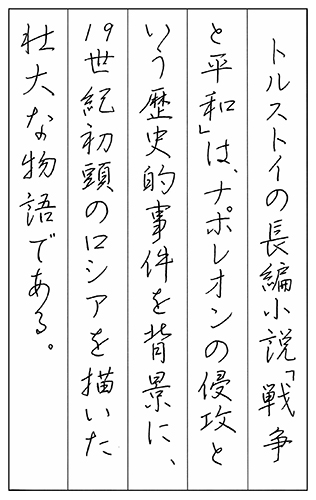 トルストイの長編小説「戦争
と平和」は、ナポレオンの侵攻と
いう歴史的事件を背景に、
19世紀初頭のロシアを描いた
壮大な物語である。